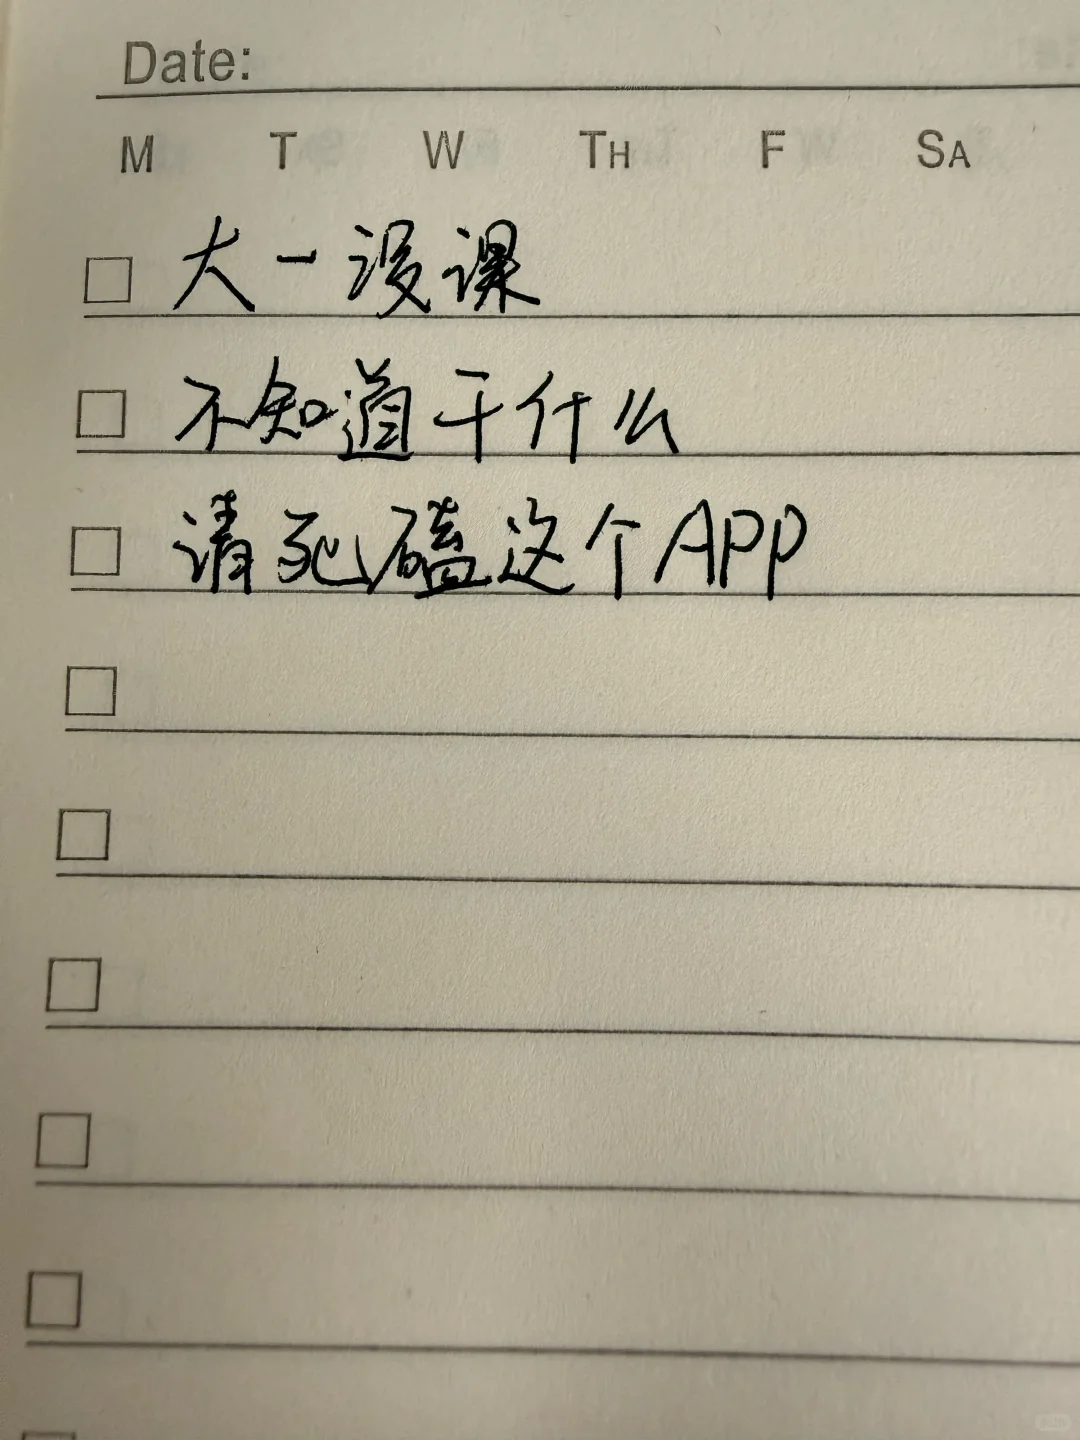 Date:
M T W TH F SA
大一没课
不知道干什么
请死磕这个APP